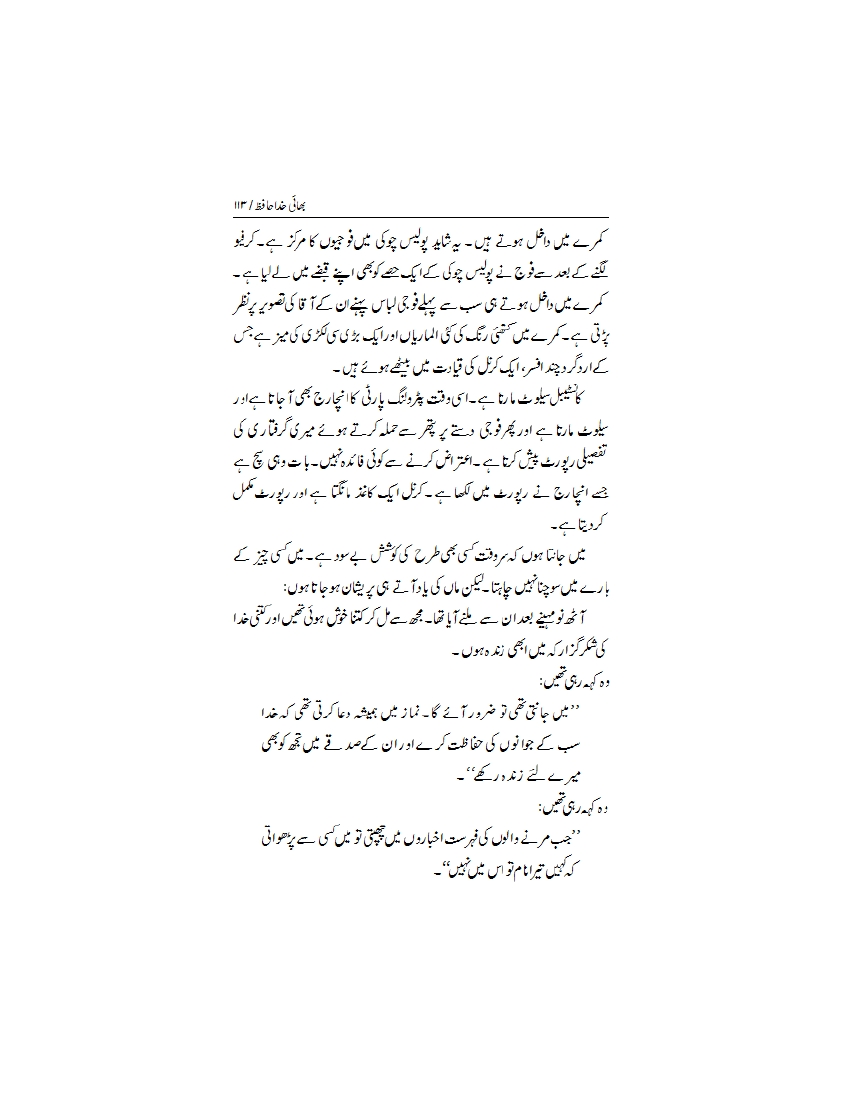 بھائی خدا حافظ / ۱۱۳
کمرے میں داخل ہوتے ہیں۔ یہ شاید پولیس چوکی میں فوجیوں کا مرکز ہے۔ کرفیو
لگنے کے بعد سے فوج نے پولیس چوکی کے ایک حصے کو بھی اپنے قبضے میں لے لیا ہے۔
کمرے میں داخل ہوتے ہی سب سے پہلے فوجی لباس پہنے ان کے آقا کی تصویر پر نظر
پڑتی ہے۔ کمرے میں کتھئی رنگ کی کئی الماریاں اور ایک بڑی سی لکڑی کی میز ہے جس
کے اردگرد چند افسر، ایک کرنل کی قیادت میں بیٹھے ہوئے ہیں۔
کانسٹیبل سیلوٹ مارتا ہے۔ اسی وقت پٹرولنگ پارٹی کا انچارج بھی آجاتا ہے اور
سیلوٹ مارتا ہے اور پھر فوجی دستے پر پتھر سے حملہ کرتے ہوئے میری گرفتاری کی
تفصیلی رپورٹ پیش کرتا ہے۔ اعتراض کرنے سے کوئی فائدہ نہیں۔ بات وہی سچ ہے
جسے انچارج نے رپورٹ میں لکھا ہے۔ کرنل ایک کاغذ مانگتا ہے اور رپورٹ مکمل
کردیتا ہے۔
میں جانتا ہوں کہ سردقت کسی بھی طرح کی کوشش بے سود ہے۔ میں کسی چیز کے
بارے میں سوچنا نہیں چاہتا۔ لیکن ماں کی یاد آتے ہی پریشان ہوجاتا ہوں:
آٹھ نو مہینے بعد ان سے ملنے آیا تھا۔ مجھ سے مل کر کتنا خوش ہوئی تھیں اور کتنی خدا
کی شکر گزار کہ میں ابھی زندہ ہوں۔
وہ کہہ رہی تھیں:
’’میں جانتی تھی تو ضرور آئے گا۔ نماز میں ہمیشہ دعا کرتی تھی کہ خدا
سب کے جوانوں کی حفاظت کرے اور ان کے صدقے میں تجھ کو بھی
میرے لئے زندہ رکھے‘‘۔
وہ کہہ رہی تھیں:
’’جب مرنے والوں کی فہرست اخباروں میں چھپتی تو میں کسی سے پڑھواتی
کہ کہیں تیرا نام تو اس میں نہیں‘‘۔